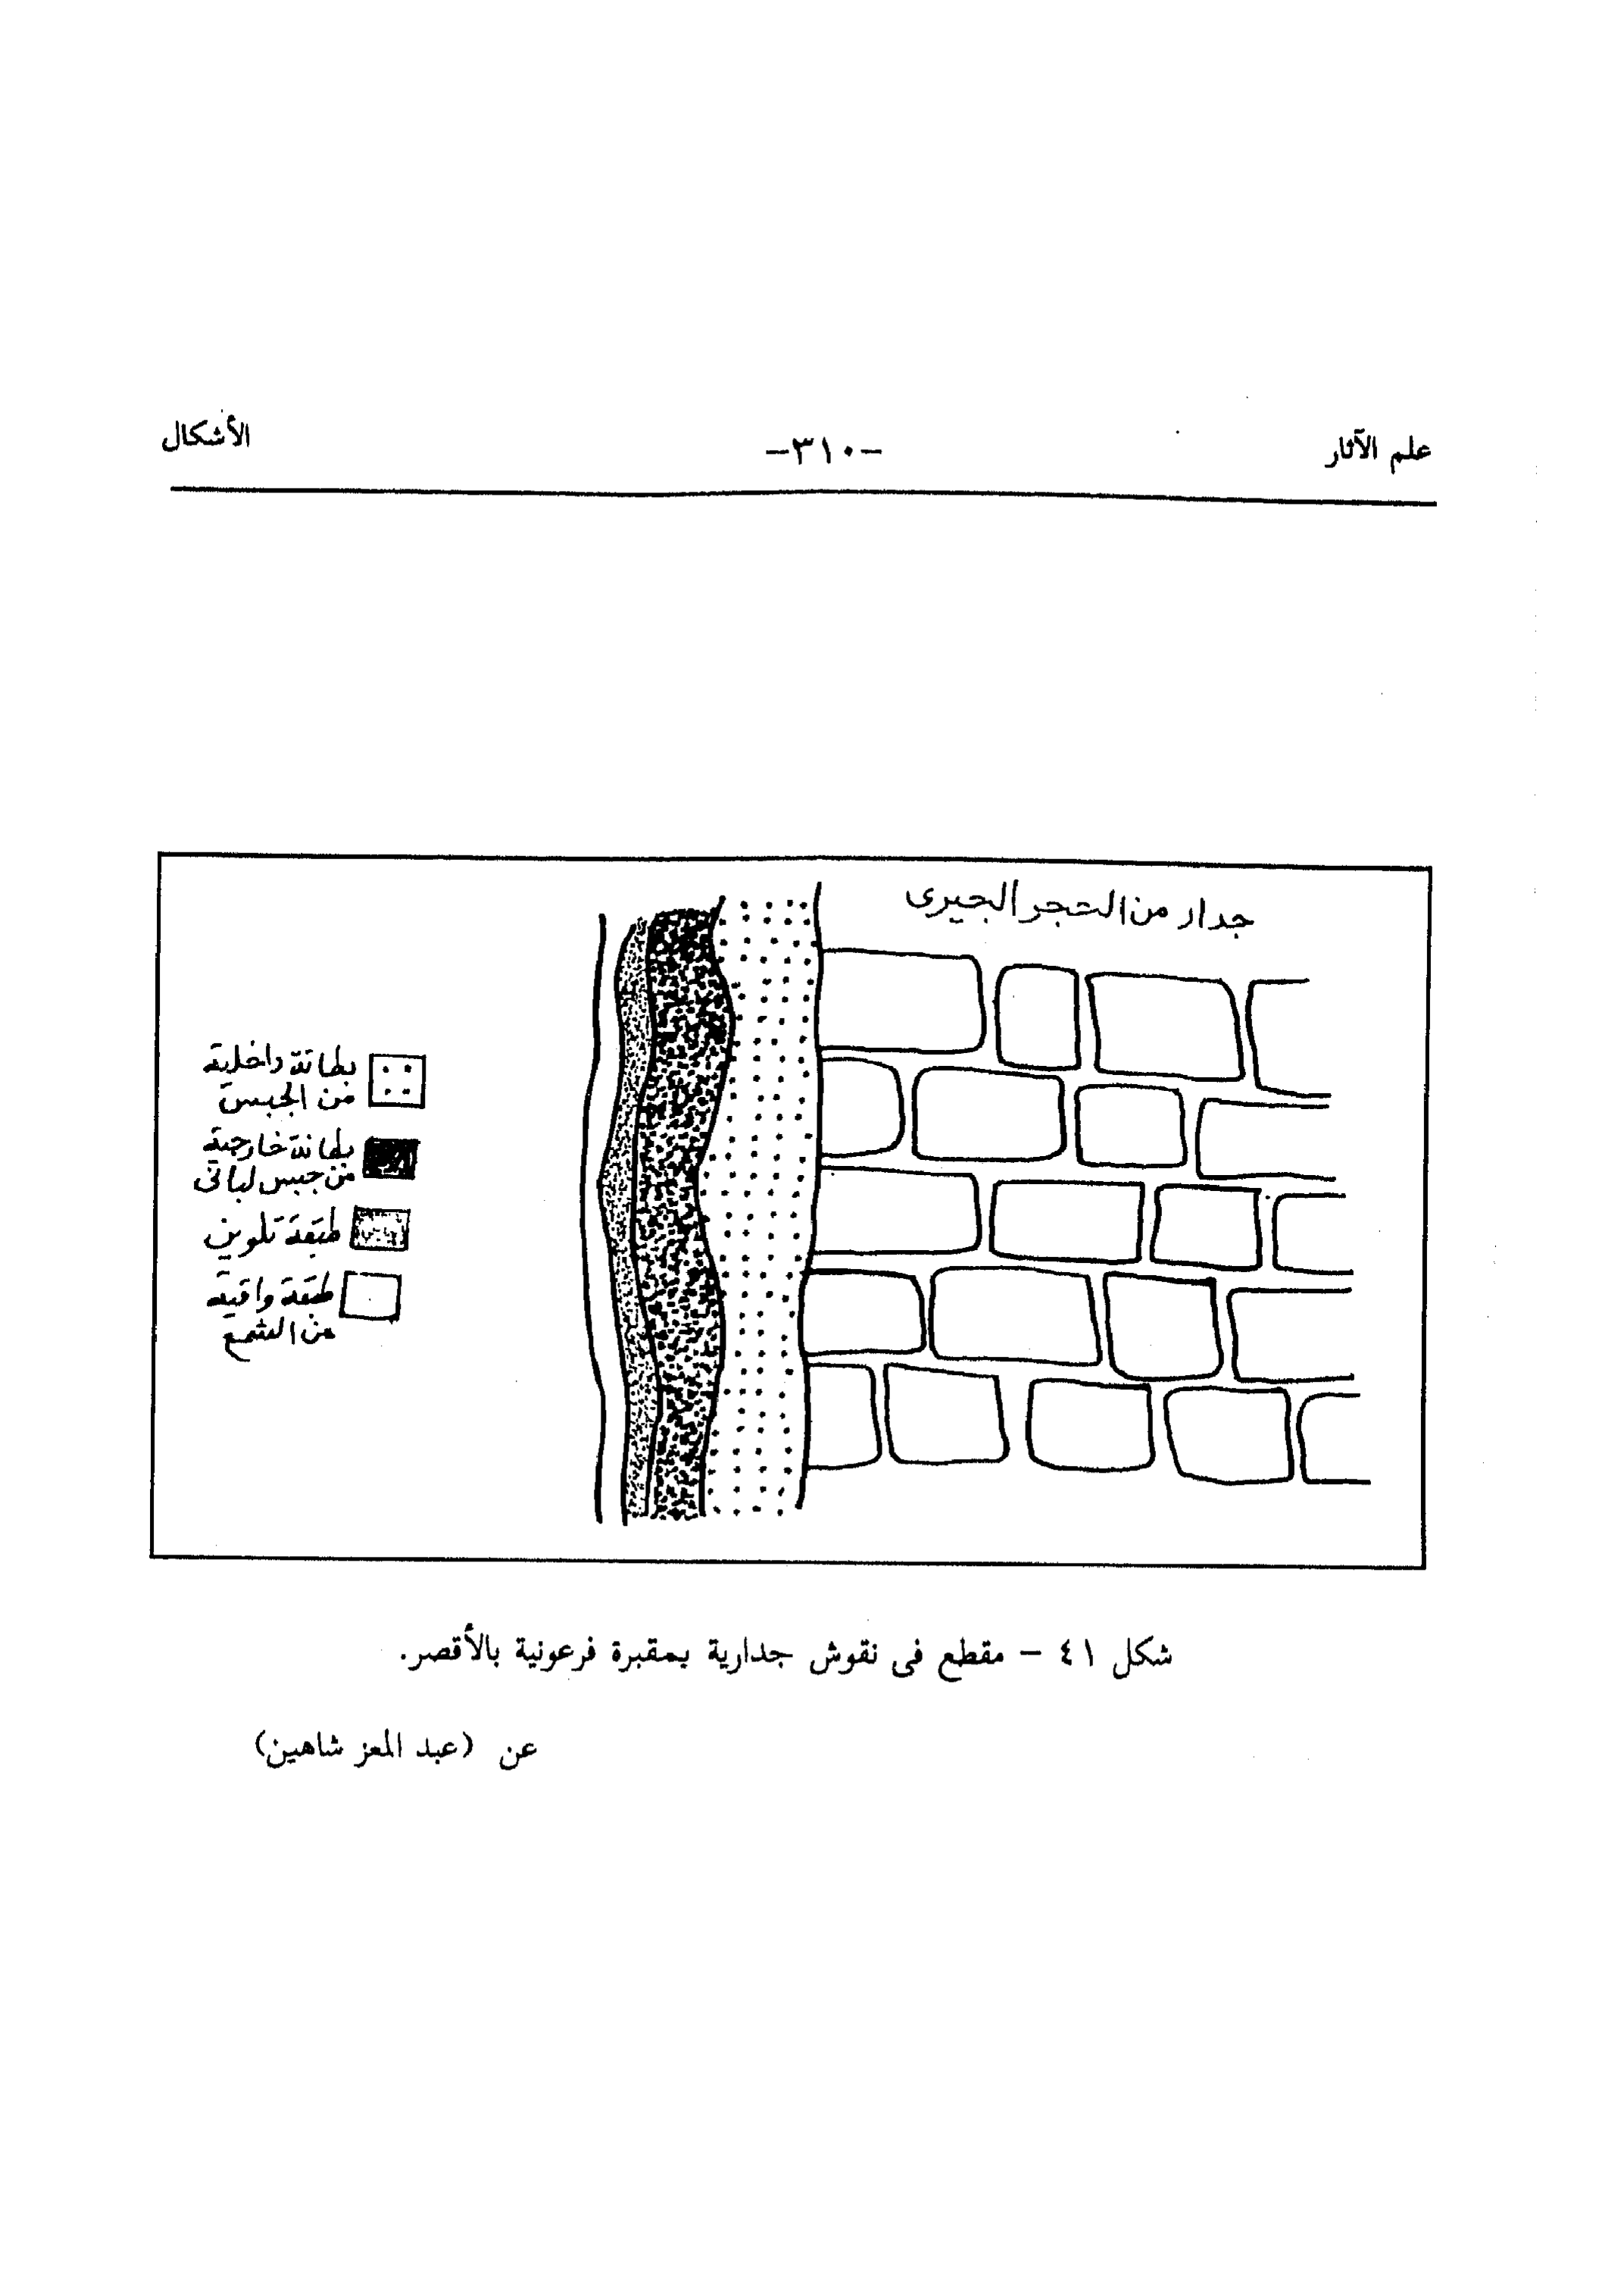 علم الآثار
-٣١٠-
الأشكال
جدار من الحجر الجيرى
بطانة داخلية
من الجبس
بطانة خارجية
من جبس لبانى
طبقة تلوين
طبقة واقية
من الشمع
شكل ٤١ - مقطع فى نقوش جدارية بمقبرة فرعونية بالأقصر.
عن (عبد المعز شاهين)